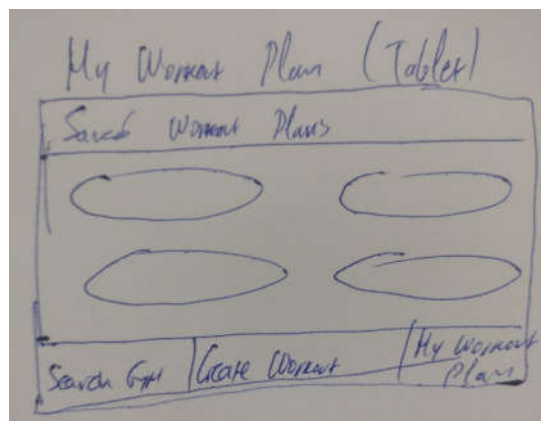 My Workout Plan (Tablet)
Saved Workout Plans
Search Gym
Create Workout
My Workout
Plans